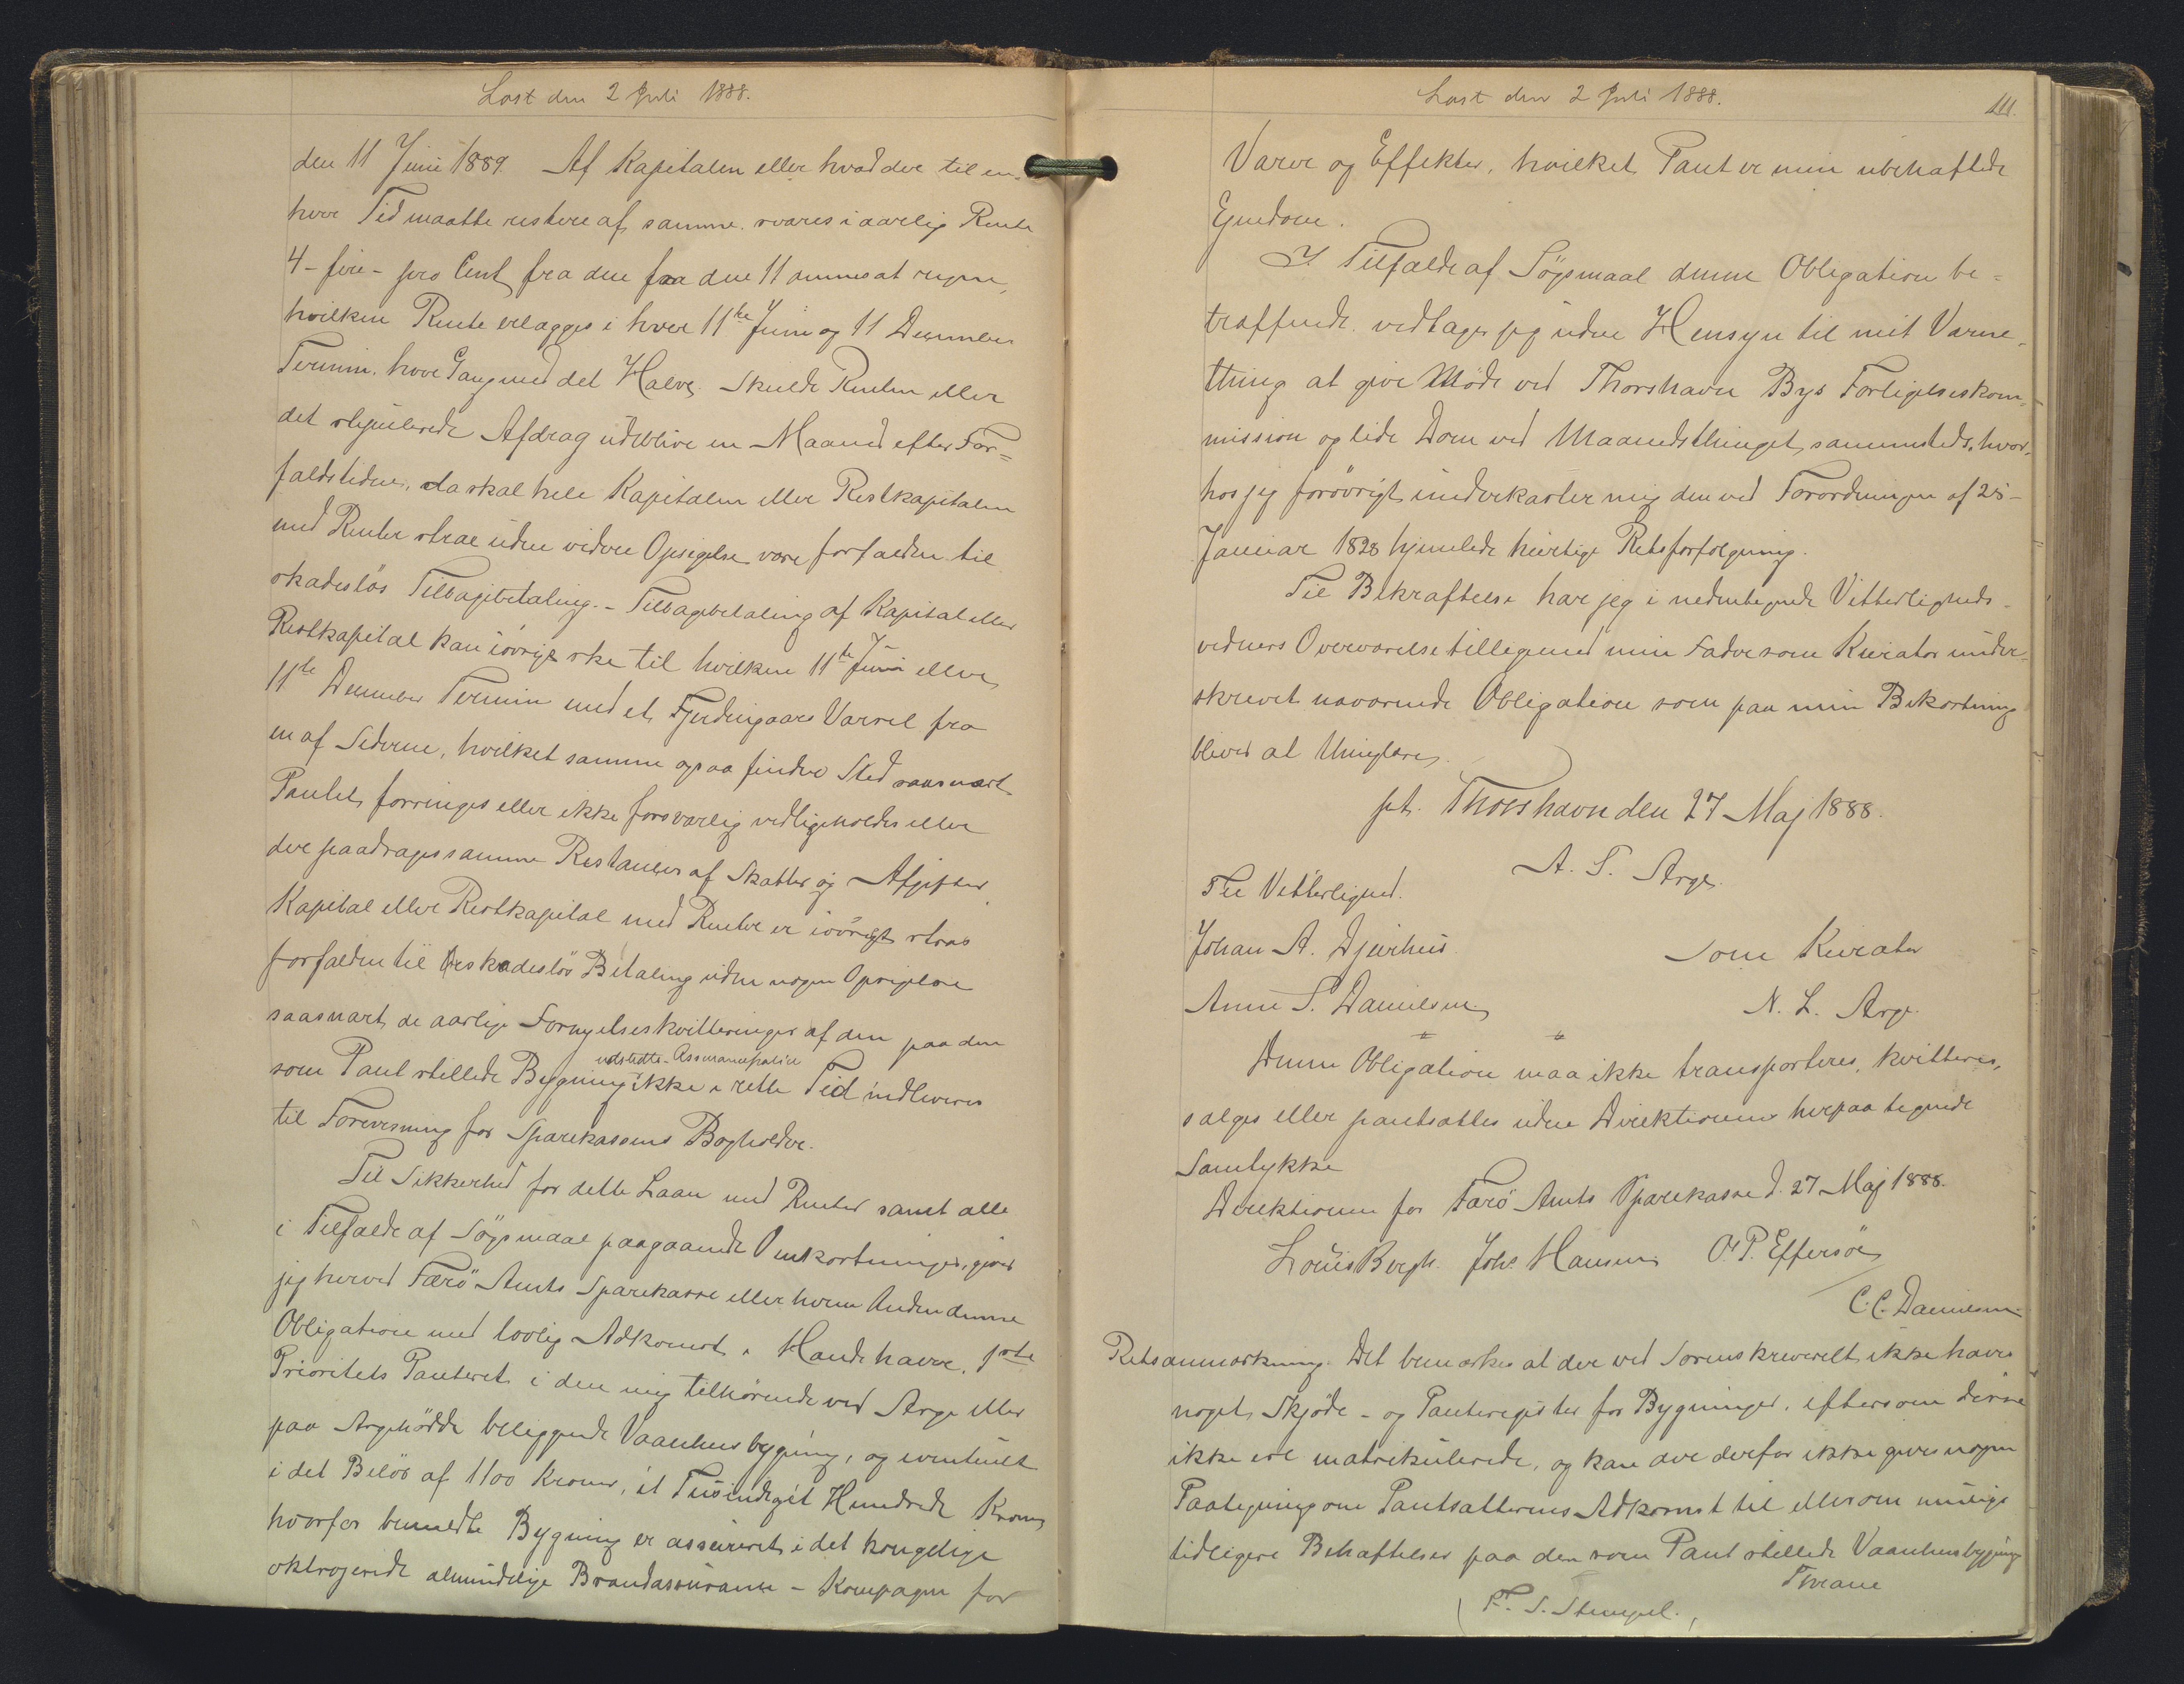 Læst den 2 Juli 1888.
den 11 Juni 1889. Af Kapitalen eller hvad der til en-
hver Tid maatte restere af samme svares i aarlig Rente
4 - fire - pro Cent fra den fra den 11 dennes at regne,
hvilken Rente erlægges i hver 11te Juni og 11 December
Termin, hver Gang med det Halve. Skulde Renten eller
det stipulerede Afdrag udeblive en Maaned efter For=
faldstiden, da skal hele Kapitalen eller Restkapitalen
med Renter strax uden videre Opsigelse være forfalden til
skadesløs Tilbagebetaling. - Tilbagebetaling af Kapital eller
Restkapital kan iøvrigt ske til hvilken 11te Juni eller
11te December Termin med et Fjerdingaars Varsel fra
en af Siderne, hvilket samme ogsaa finder Sted saasnart
Pantet forringes eller ikke forsvarlig vedligeholdes eller
der paadrages samme Restancer af Skatter og Afgifter
Kapital eller Restkapital med Renter er iøvrigt strax
forfalden til skadesløs Betaling uden nogen Opsigelse
saasnart de aarlige Fornyelseskvitteringer af den paa den
udstedte Assurancepolice
som Pant stillede Bygning ikke i rette Tid indleveres
til Forevisning for Sparekassens Bogholder.
Til Sikkerhed for dette Laan med Renter samt alle
i Tilfælde af Søgsmaal paagaaende Omkostninger, giver
jeg herved Færø Amts Sparekasse eller hvem Anden denne
Obligation med lovlig Adkomst i Hænde haver, 1ste
Prioritets Panteret i den mig tilhørende ved Arge eller
paa Argehødde beliggende Vaanhusbygning, og eventuelt
i det Beløb af 1100 Kroner, et Tusindeget Hundrede Kroner
hvorfor bemeldte Bygning er assureret i det kongelige
oktrojerede almindelige Brandassurance - Kompagni for
Læst den 2 Juli 1888.
111.
Varer og Effekter, hvilket Pant er min ubehæftede
Ejendom.
I Tilfælde af Søgsmaal denne Obligation be=
træffende vedtager jeg uden Hensyn til mit Værne-
thing at give Møde ved Thorshavn Bys Forligelseskom-
mission og lide Dom ved Maanedsthinget sammesteds, hvor-
hos jeg forøvrigt underkaster mig den ved Forordningen af 25-
Januar 1828 hjemlede hurtige Retsforfølgning.
Til Bekræftelse har jeg i nedentegnede Vitterligheds-
vidners Overværelse tilligemed min Fader som Kurator under-
skrevet nærværende Obligation som paa min Bekostning
bliver at thinglæse.
pt. Thorshavn den 27 Maj 1888.
A. S. Arge.
Til Vitterlighed.
Johan A. Djurhuus.
Som Kurator
Anne S. Danielsen.
N. L. Arge.
Denne Obligation maa ikke transporteres, kvitteres,
sælges eller pantsættes uden Direktionens herpaa tegnede
Samtykke
Direktionen for Færø Amts Sparekasse d. 27 Maj 1888.
Louis Bergh. Johs Hansen. O. P. Effersøe
C. C. Danielsen.
Retsanmærkning. Det bemærkes at der ved Sorenskriveriet ikke haves
noget Skjøde- og Panteregister for Bygninger, eftersom disse
ikke ere matrikulerede, og kan der derfor ikke gives nogen
Paategning om Pantsætterens Adkomst til eller om mulige
tidligere Behæftelser paa den som Pant stillede Vaanhusbygning
Thrane
S. Stempel.